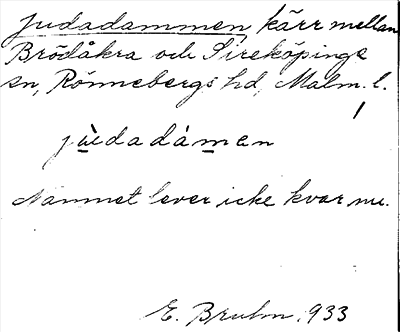 Judadammen, kärr mellan
Brödåkra och Sireköpinge
sn, Rönnebergs hd, Malm. l.
jùdadámen
Namnet lever icke kvar nu.
E. Bruhn 1933